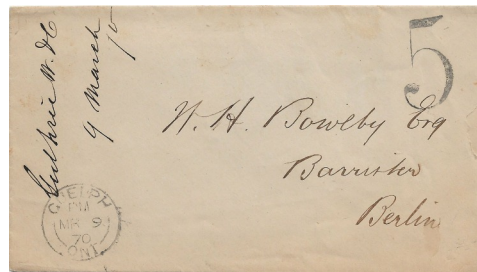 5
Guthrie W. &C
9 March
70
W. H. Bowlby Esq
Barrister
Berlin
GUELPH
PM
MR 9
70
ONT